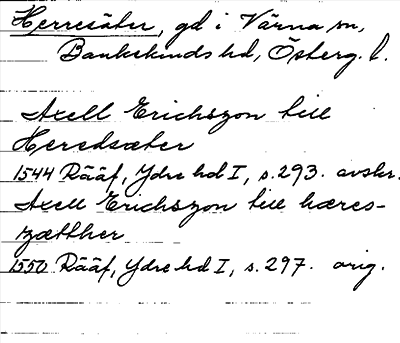 Herresäter, gd i Värna sn,
Bankekinds hd, Österg. l.
Axell Erichszon till
Heredsæter
1544 Rääf, Ydre hd I, s. 293. avskr.
Axell Erichszon till hæres-
zætther
1550 Rääf, Ydre hd I, s. 297. orig.